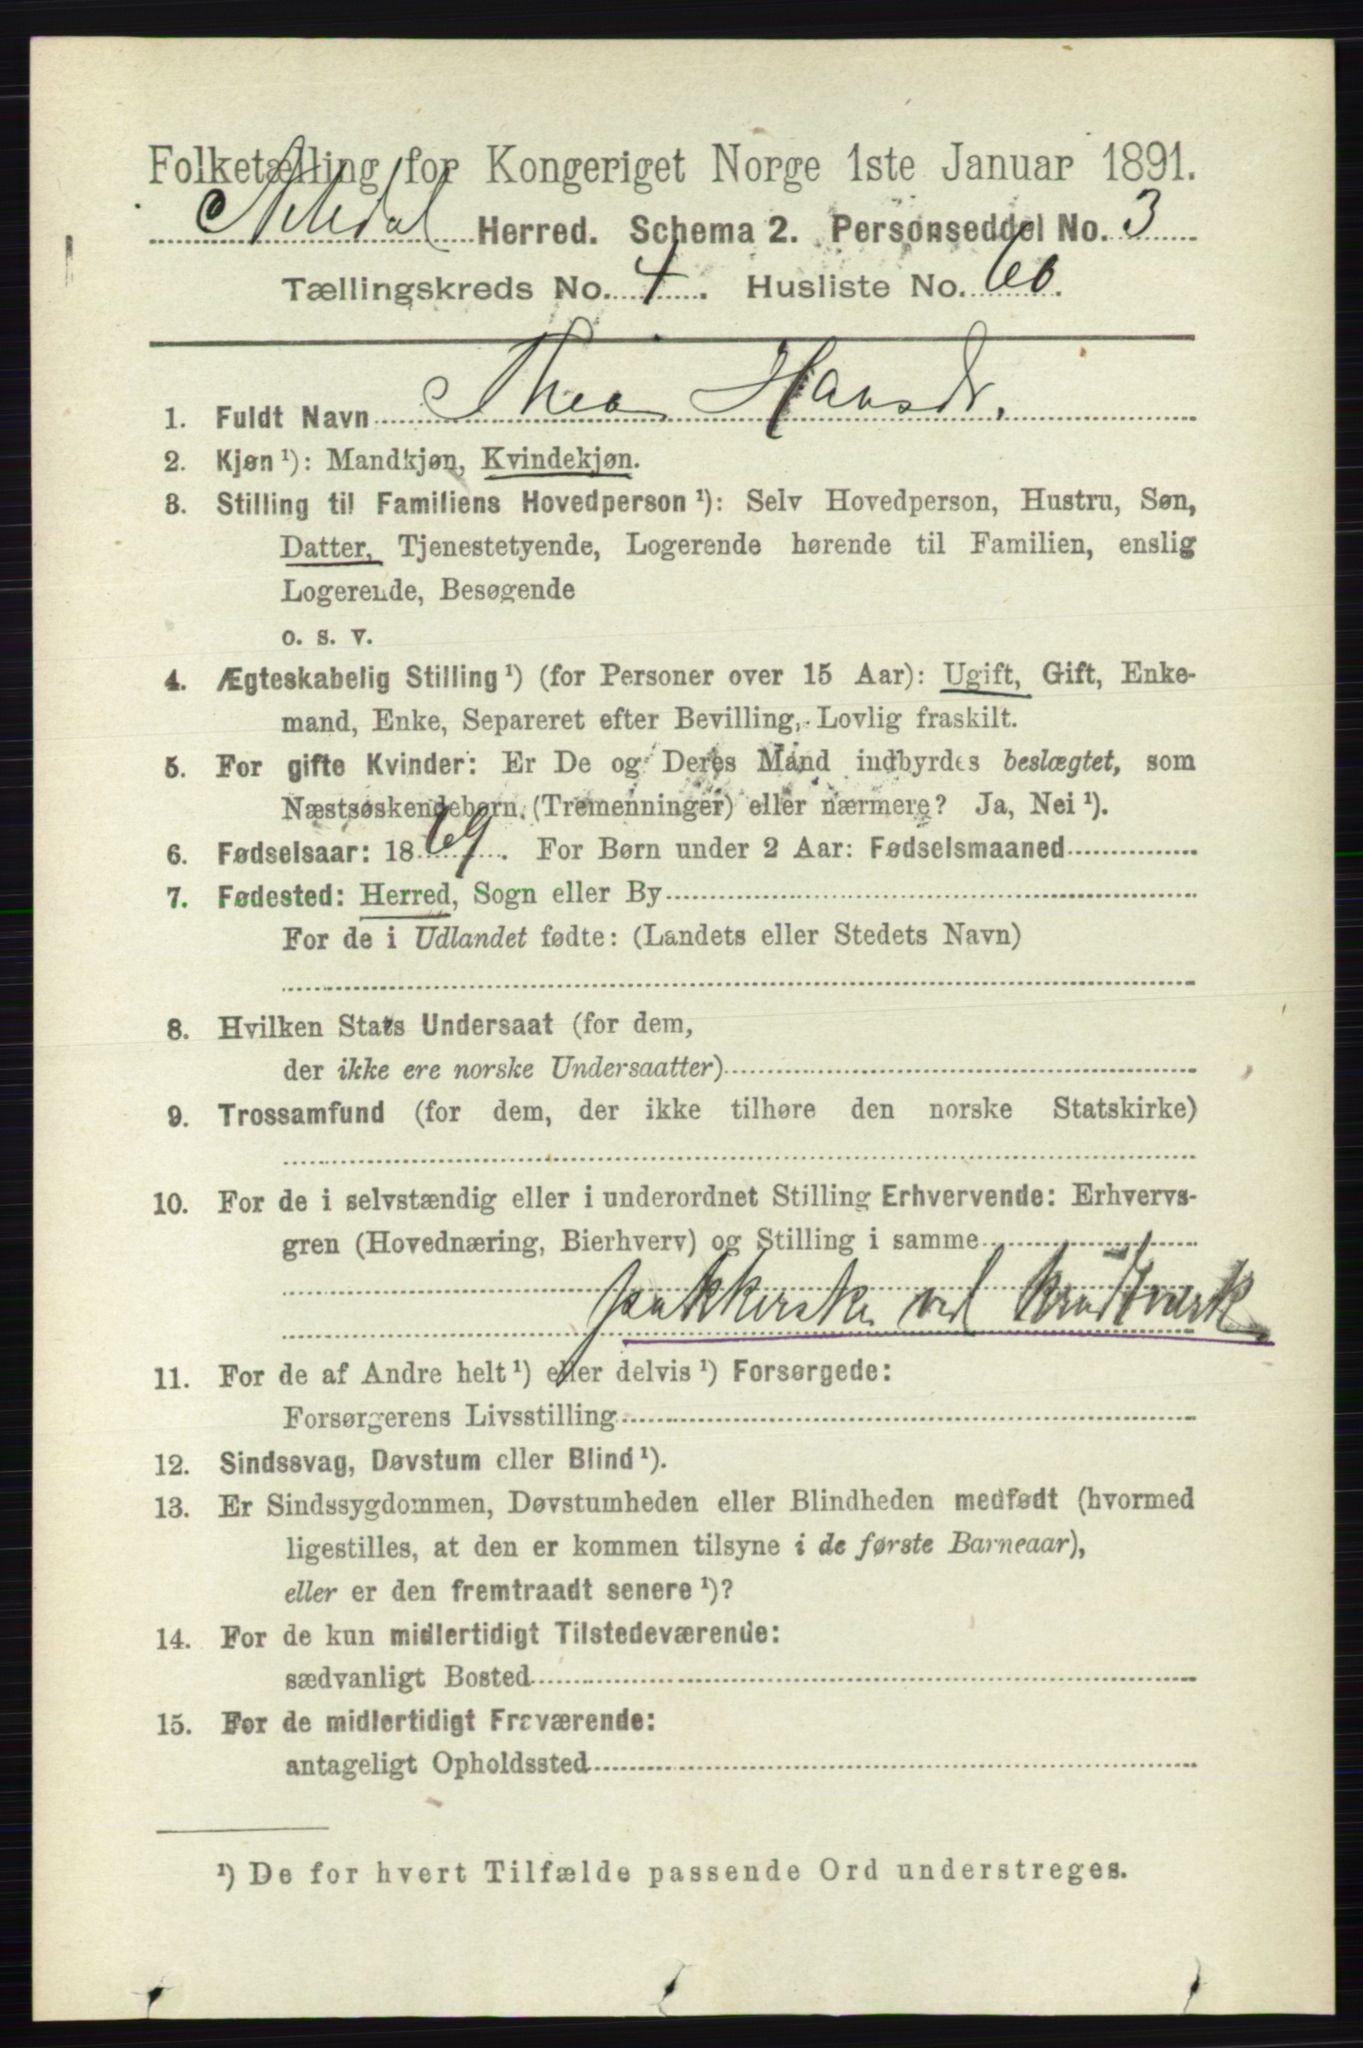 Folketælling for Kongeriget Norge 1ste Januar 1891.
Herred. Schema 2. Personseddel No. 3
Tællingskreds No. 4. Husliste No. 60.
1. Fuldt Navn Thea Hansdr.
2. Kjøn ¹): Mandkjøn, Kvindekjøn.
3. Stilling til Familiens Hovedperson ¹): Selv Hovedperson, Hustru, Søn,
Datter, Tjenestetyende, Logerende hørende til Familien, enslig
Logerende, Besøgende
o. s. v.
4. Ægteskabelig Stilling ¹) (for Personer over 15 Aar): Ugift, Gift, Enke-
mand, Enke, Separeret efter Bevilling, Lovlig fraskilt.
5. For gifte Kvinder: Er De og Deres Mand indbyrdes beslægtet, som
Næstsøskendebørn (Tremenninger) eller nærmere? Ja, Nei ¹).
6. Fødselsaar: 1869. For Børn under 2 Aar: Fødselsmaaned
7. Fødested: Herred, Sogn eller By
For de i Udlandet fødte: (Landets eller Stedets Navn)
8. Hvilken Stats Undersaat (for dem,
der ikke ere norske Undersaatter)
9. Trossamfund (for dem, der ikke tilhøre den norske Statskirke)
10. For de i selvstændig eller i underordnet Stilling Erhvervende: Erhvervs-
gren (Hovednæring, Bierhverv) og Stilling i samme
pakkerske ved Krudtværk
11. For de af Andre helt ¹) eller delvis ¹) Forsørgede:
Forsørgerens Livsstilling
12. Sindssvag, Døvstum eller Blind ¹).
13. Er Sindssygdommen, Døvstumheden eller Blindheden medfødt (hvormed
ligestilles, at den er kommen tilsyne i de første Barneaar),
eller er den fremtraadt senere ¹)?
14. For de kun midlertidigt Tilstedeværende:
sædvanligt Bosted
15. For de midlertidigt Fraværende:
antageligt Opholdssted
¹) De for hvert Tilfælde passende Ord understreges.